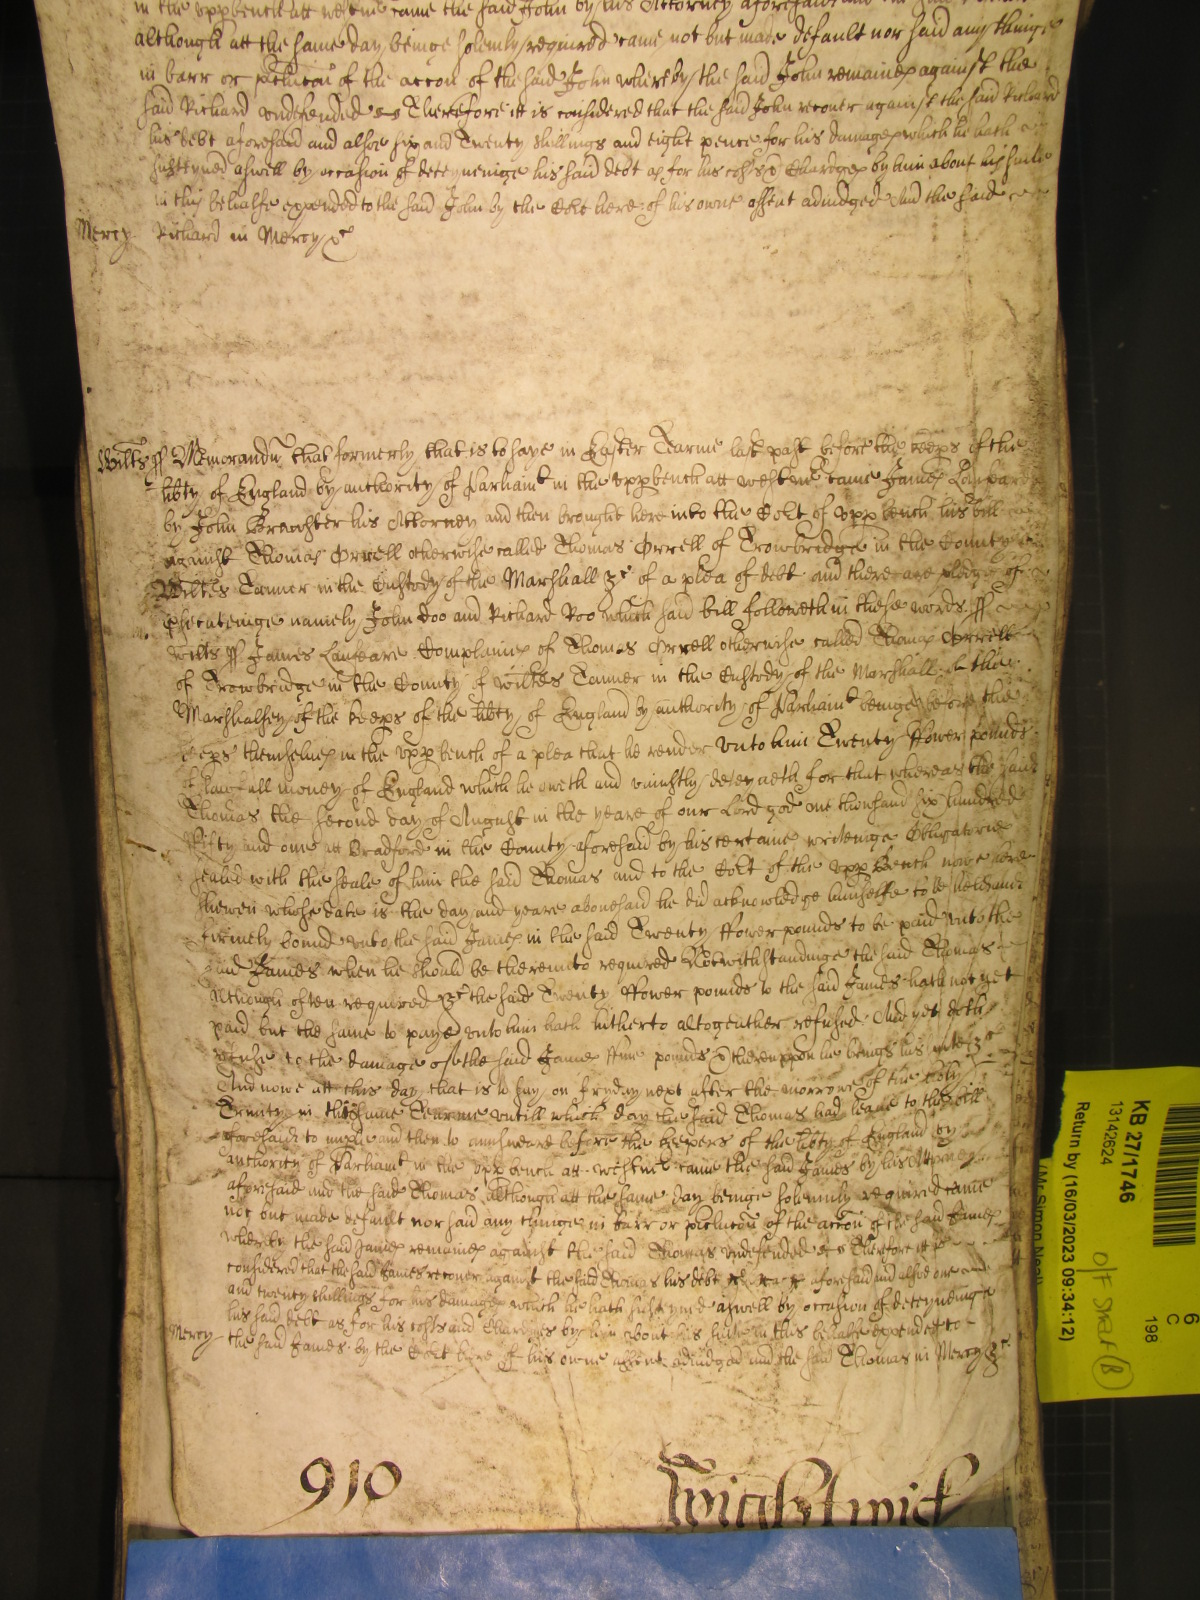 in the uppbench att westmr came the said John by his Attorney aforesaid and the said
although att the same day beinge solemly required came not but made default nor said any thinge
in barr or preclucōn of the accōn of the said John whereby the said John remaines against the
said Richard undefended Therefore it is considered that the said John recover against the said Richard
his debt aforesaid and alsoe six and Twenty shillings and eight pence for his damages which he hath
susteyned aswell by occasion of deteyneinge his said debt as for his costs & Chardges by him about his suite
in this behalfe expended to the said John by the Cort here of his owne assent adiudged And the said
Mercy Richard in Mercy &c
Wiltes ss Memorandū that formerly that is to saye in Easter Tearme last past before the keeps of the
libty of England by authority of Parliamt in the uppbench att westmr came James Lanfeare
by John Brewster his Attorney and then brought here into the Cort of upp bench his bill
against Thomas Orrell otherwise called Thomas Orrell of Trowbridge in the County of
Wiltes Tanner in the Custody of the Marshall &c of a plea of debt and there are pledges of
prosecuteinge namely John Doo and Richard Roo which said bill followeth in these words ss
Wilts ss James Lanfeare Complaines of Thomas Orrell otherwise called Thomas Orrell
of Trowbridge in the County of wiltes Tanner in the Custody of the Marshall of the
Marshalsey of the keeps of the libty of England by authority of Parliamt beinge before the
keeps themselves in the upp bench of a plea that he render unto him Twenty ffower pounds
of lawfull money of England which he oweth and uniustly deteyneth for that whereas the said
Thomas the second day of August in the yeare of our Lord god one thousand six hundred
fifty and one att Bradford in the County aforesaid by his certaine writeinge Obligatorie
sealed with the seale of him the said Thomas and to the Cort of the upp Bench nowe here
shewen whose date is the day and yeare abovesaid he did acknowledge himselfe to be held and
firmely bound unto the said James in the said Twenty ffower pounds to be paid unto the
said James when he should be thereunto required Notwithstandinge the said Thomas
although often required &c the said Twenty ffower pounds to the said James hath not yet
paid but the same to paye unto him hath hitherto altogeather refused And yet doth
refuse to the damage of the said James ffive pounds & thereuppon he brings his suite &c
And nowe att this day that is to say on fryday next after the morrowe of the holy
Trinity in this same Tearme untill which day the said Thomas had leave to the bill
aforesaid to imple and then to answeare before the keepers of the libty of England by
authority of Parliamt in the upp bench att westmr came the said James by his Attorney
aforesaid and the said Thomas although att the same day beinge solemnly required came
not but made default nor said any thinge in barr or preclucōn of the accōn of the said James
whereby the said James remaines against the said Thomas undefended Therefore it is
considered that the said James recover against the said Thomas his debt aforesaid and alsoe one
and twenty shillings for his damages which he hath susteyned aswell by occasion of deteyninge
his said debt as for his costs and Chardges by him about his suite in this behalfe expended to
Mercy the said James by the Cort here of his owne assent adiudged and the said Thomas in Mercy &c
910 Wightwick
KB 27/1746
13142624
Return by (16/03/2023 09:34:12)
(Mr Simon Neal)
6
C
198
O/F Strat (B)